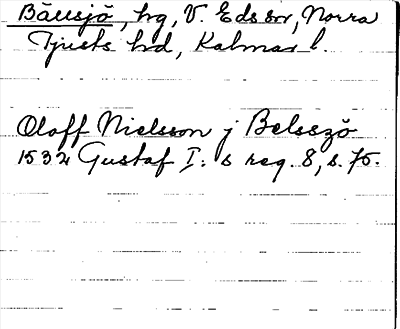 Bäusjö, hg, V. Eds sn, Norra
Tjusts hd, Kalmar l.
Olaff Nielsson j Belsszö
1532 Gustaf I:s reg. 8, s. 75.